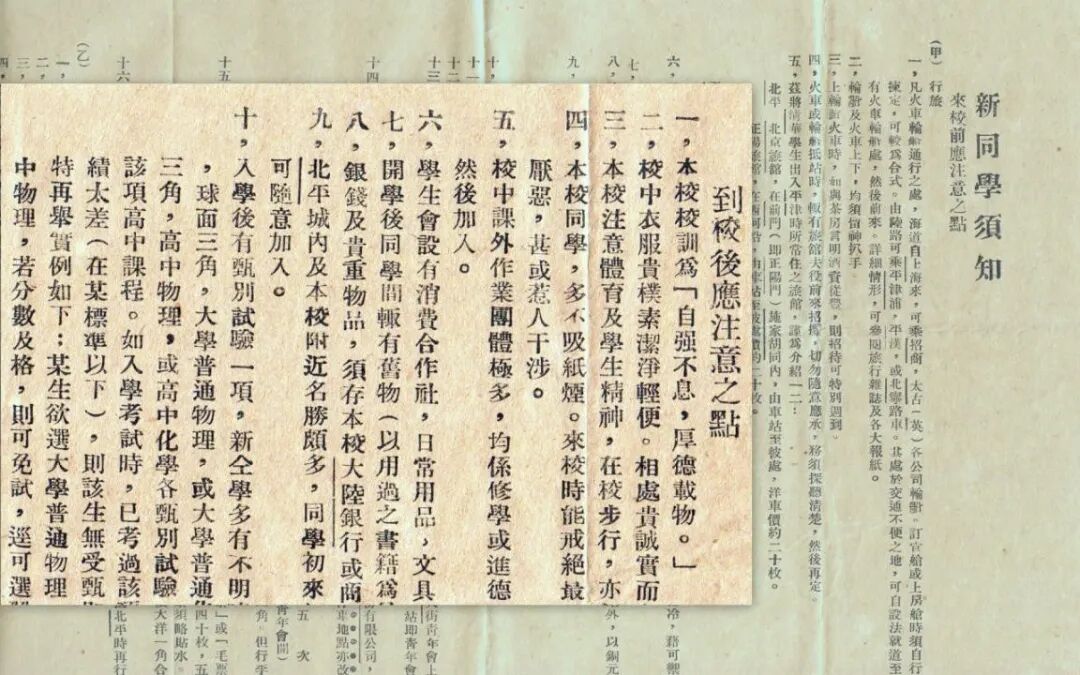 新同學須知
來校前應注意之點
(甲) 行旅
一，凡火車輪船通行之處，海道自上海來，可乘招商，太古（英）各公司輪船。訂官艙或上房艙時須自行
揀定，可較爲合式。由陸路可乘平津浦，平漢，或北寧路車。其處於交通不便之地，可自設法就道至
有火車輪船處，然後前來。詳細情形，可參閱旅行雜誌及各大報紙。
二，輪船及火車上下，均須留神扒手。
三，上輪船火車時，如與茶房言明酒資從豐，則招待可特別週到。
四，火車或輪船抵站時，輒有旅館夫役前來招攬，切勿隨意應承，務須探聽清楚，然後再定。
五，茲將清華學生出入平津時所常住之旅館，謹爲介紹一二：
北平 北京旅館，在前門（即正陽門）施家胡同內，由車站至彼處，洋車價約二十枚。
六，
七，
八，
九，
十，
十一，
十二，
十三，
十四，
十五，
十六，
(乙)
一，
二，
三，
四，
到校後應注意之點
一，本校校訓爲「自强不息，厚德載物。」
二，校中衣服貴樸素潔淨輕便。相處貴誠實而
三，本校注意體育及學生精神，在校步行，亦
四，本校同學，多不吸紙煙。來校時能戒絕最
厭惡，甚或惹人干涉。
五，校中課外作業團體極多，均係修學或進德
然後加入。
六，學生會設有消費合作社，日常用品，文具
七，開學後同學間輒有舊物（以用過之書籍爲
八，銀錢及貴重物品，須存本校大陸銀行或商
九，北平城內及本校附近名勝頗多，同學初來
可隨意加入。
十，入學後有甄別試驗一項，新仝學多有不明
，球面三角，大學普通物理，或大學普通
三角，高中物理，或高中化學各甄別試驗
該項高中課程。如入學考試時，已考過該
績太差（在某標準以下），則該生無受甄
特再舉實例如下：某生欲選大學普通物理
中物理，若分數及格，則可免試，逕可選